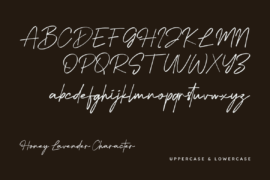 ABCDEFGHIJKLMN
OPQRSTUVWXYZ
abcdefghijklmnopqrstuvwxyz
Honey Lavender Character
UPPERCASE & LOWERCASE